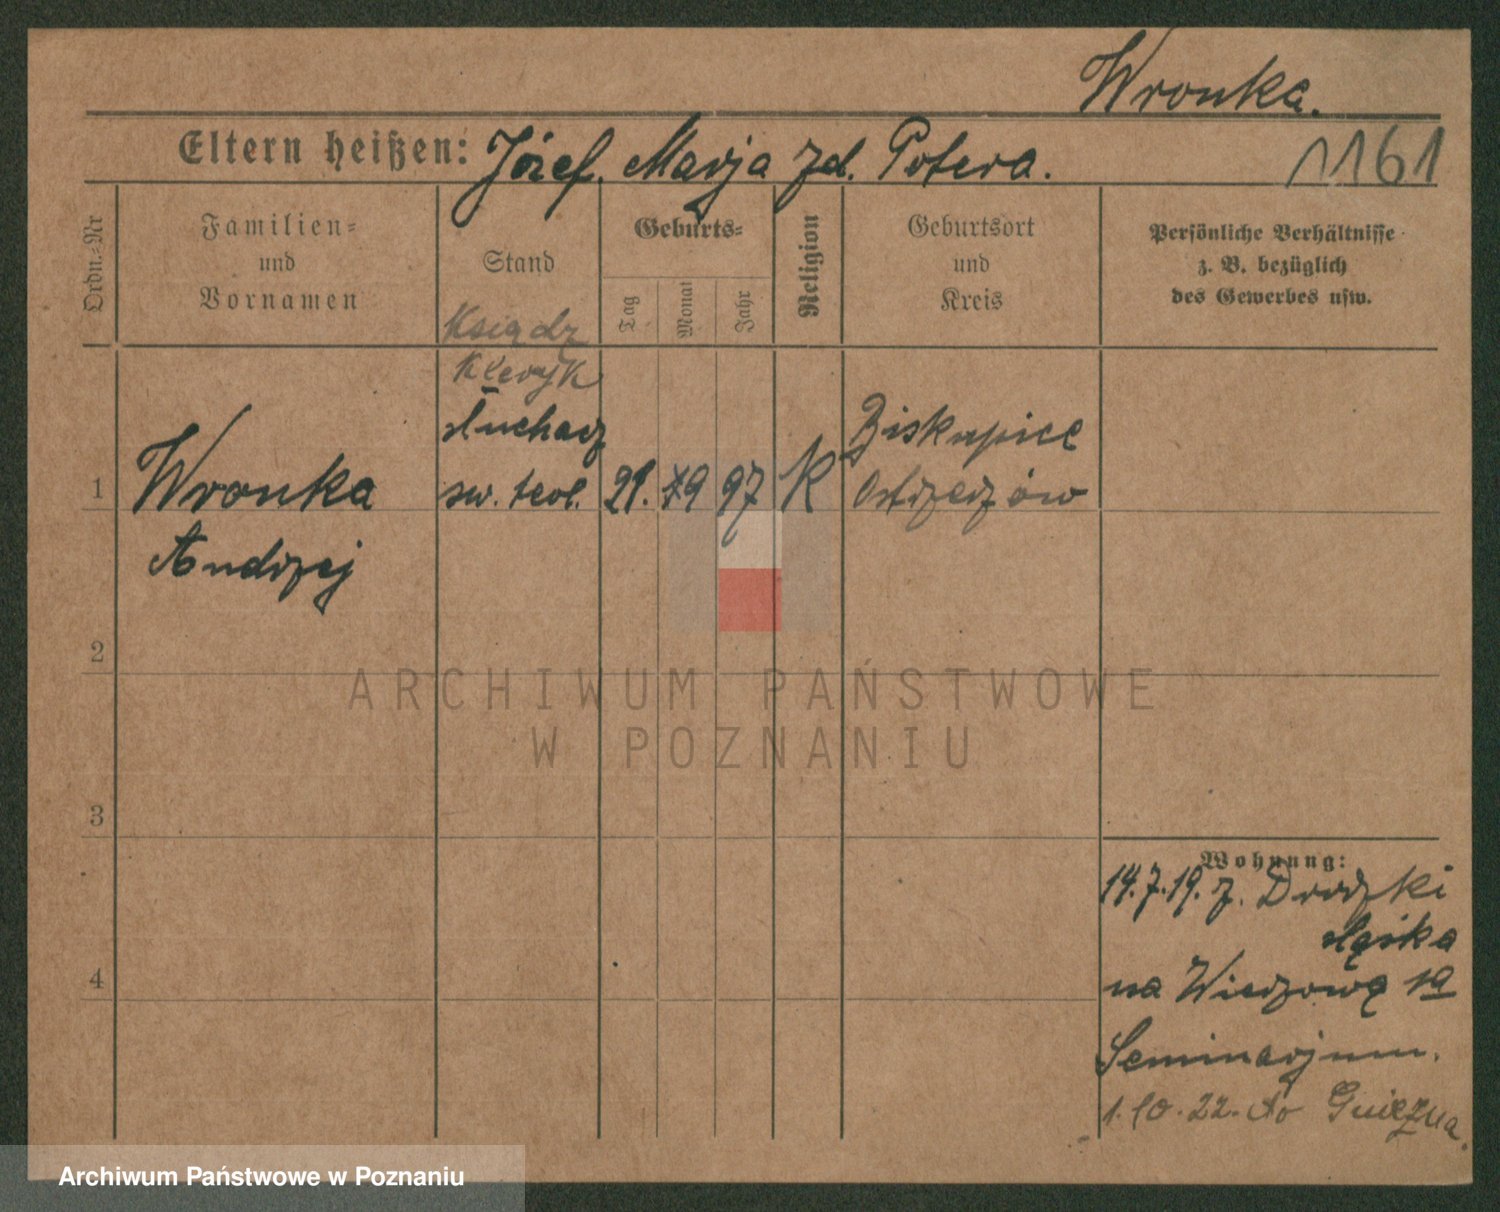 Wronka.
Eltern heißen: Józef. Marja zd. Potera.
1161
Ordn.-Nr
Familien-
und
Vornamen
Stand
Geburts-
Tag
Monat
Jahr
Religion
Geburtsort
und
Kreis
Persönliche Verhältnisse
z. B. bezüglich
des Gewerbes usw.
Ksiądz
Kleryk
słuchacz
1 Wronka św. teol. 21. 9 97 K
Biskupice
Ostrzeszów
Andrzej
2
ARCHIWUM PAŃSTWOWE
W POZNANIU
3
Wohnung:
14.7.19. z.
śląska
4
na Wieżową 1a
Seminarjum.
1.10.22. do Gniezna.
Archiwum Państwowe w Poznaniu